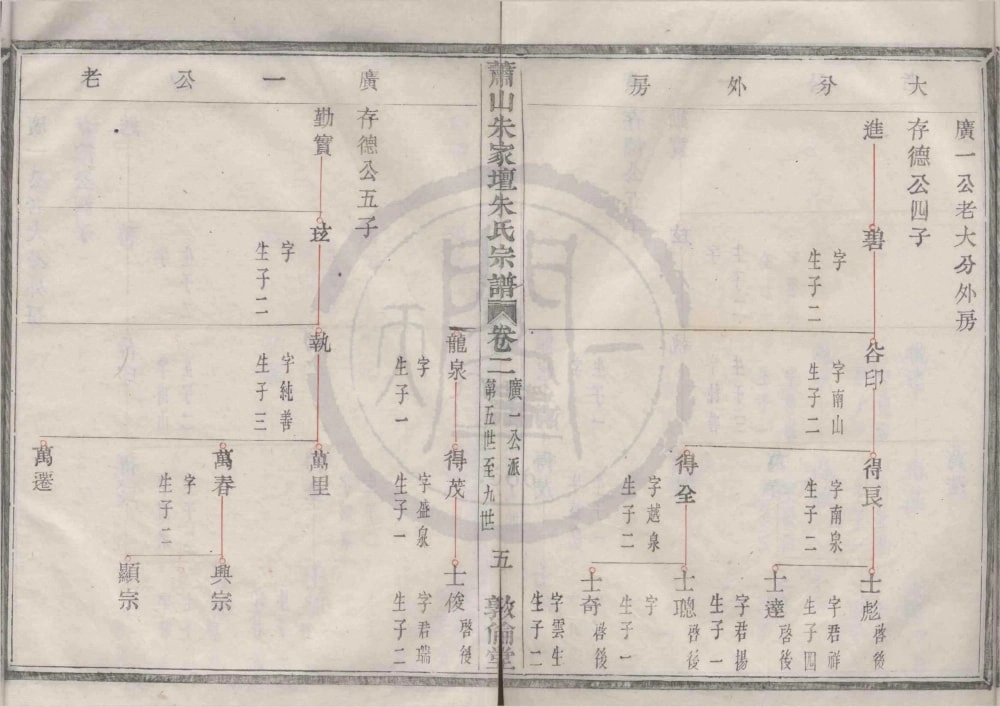 大分外房
廣一公老大分外房
存德公四子
進
碧
字
生子二
谷印
字南山
生子二
得良
字南泉
生子二
士彪
啓後
字君祥
生子四
士達
啓後
字君揚
生子一
得全
字越泉
生子二
士璁
啓後
字
生子一
士奇
啓後
字雲生
生子二
蕭山朱家壇朱氏宗譜
卷二
廣一公派
第五世至九世
五
敦倫堂
龍泉
字
生子一
得茂
字盛泉
生子一
士俊
啓後
字君瑞
生子二
廣一公老
存德公五子
勤實
玹
字
生子二
執
字純善
生子三
萬里
萬春
字
生子二
興宗
顯宗
萬遷